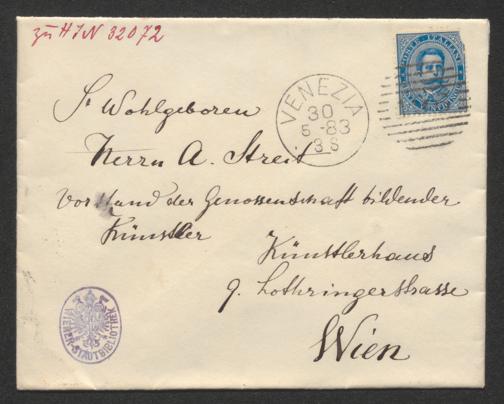 zu HIN 32072
POSTE ITALIANE
VENEZIA
30
5 -83
3 S
Sr Wohlgeboren
Herrn A. Streit
Vorstand der Genossenschaft bildender
Künstler
Künstlerhaus
9. Lothringerstrasse
Wien
WIENER-STADTBIBLIOTHEK